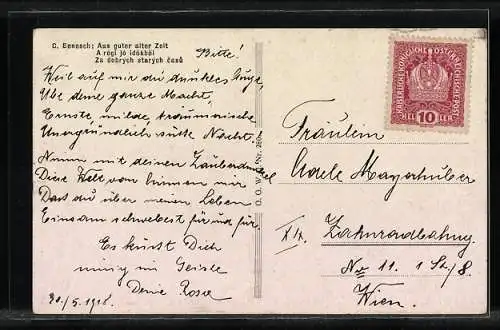 C. Benesch: Aus guter alter Zeit
A régi jó időkből
Za dobrých starých časů
Bitte!
Weil' auf mir du dunkles Auge,
Übe deine ganze Macht,
Ernste, milde, träumerische
Unergründlich süße Nacht.
Nimm mit deinem Zauberdunkel
Diese Welt von hinnen mir
Dass du über meinem Leben
Einsam schwebest für und für.
Es küsst Dich
innig im Geiste
Deine Rosa
30/5. 1918.
KAISERLICHE KÖNIGLICHE ÖSTERREICHISCHE POST
HELLER 10
Fräulein
Adele Mayerhuber
XIX. Zahnradbahng.
No 11. 1 St/8.
Wien.
O. G. W. Nr.